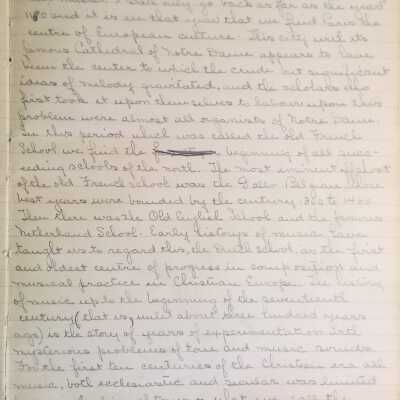 may go back as far as the year
and it is in that year that we find Paris the
centre of European culture. This city with its
famous Cathedral of Notre Dame appears to have
been the center to which the crude but significant
ideas of melody gravitated, and the scholars who
first took it upon themselves to labour upon this
problem were almost all organists of Notre Dame.
In this period which was called the old French
School we find the beginning of all succ-
eeding schools of the north. The most eminent offshoot
of the old French School was the Gallo Belgian whose
best years were bounded by the century 1360 to 1460.
Then there was the Old English School and the famous
Netherland School. Early historys of music have
taught us to regard this, the Dutch School, as the first
and oldest centre of progress in composition and
musical practice in Christian Europe. The history
of music up to the beginning of the seventeenth
century (that is, until about three hundred years
ago) is the story of years of experimentation with
mysterious problems of tone and music sounds.
For the first ten centuries of the Christian era all
music, both ecclesiastic and secular was limited
what we call the